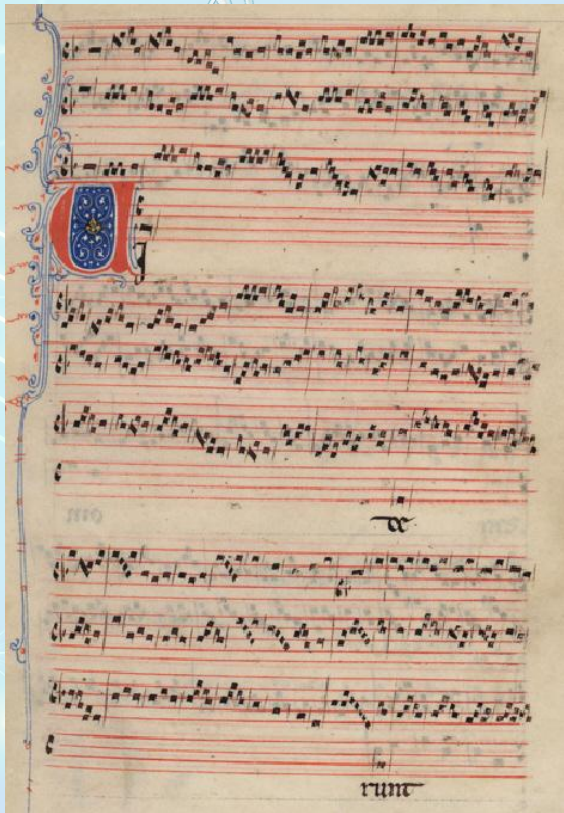 VI
de
runt